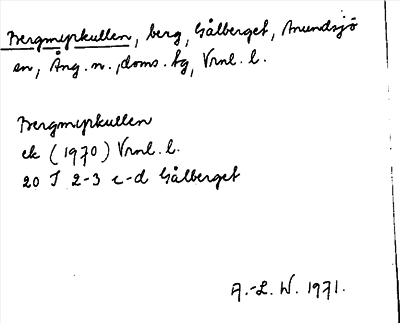 Bergmyrkullen, berg, Gålberget, Anundsjö
sn, Ång. n., doms. tg, Vrnl. l.
Bergmyrkullen
ek (1970) Vrnl. l.
20 I 2-3 c-d Gålberget
A.-L. W. 1971.